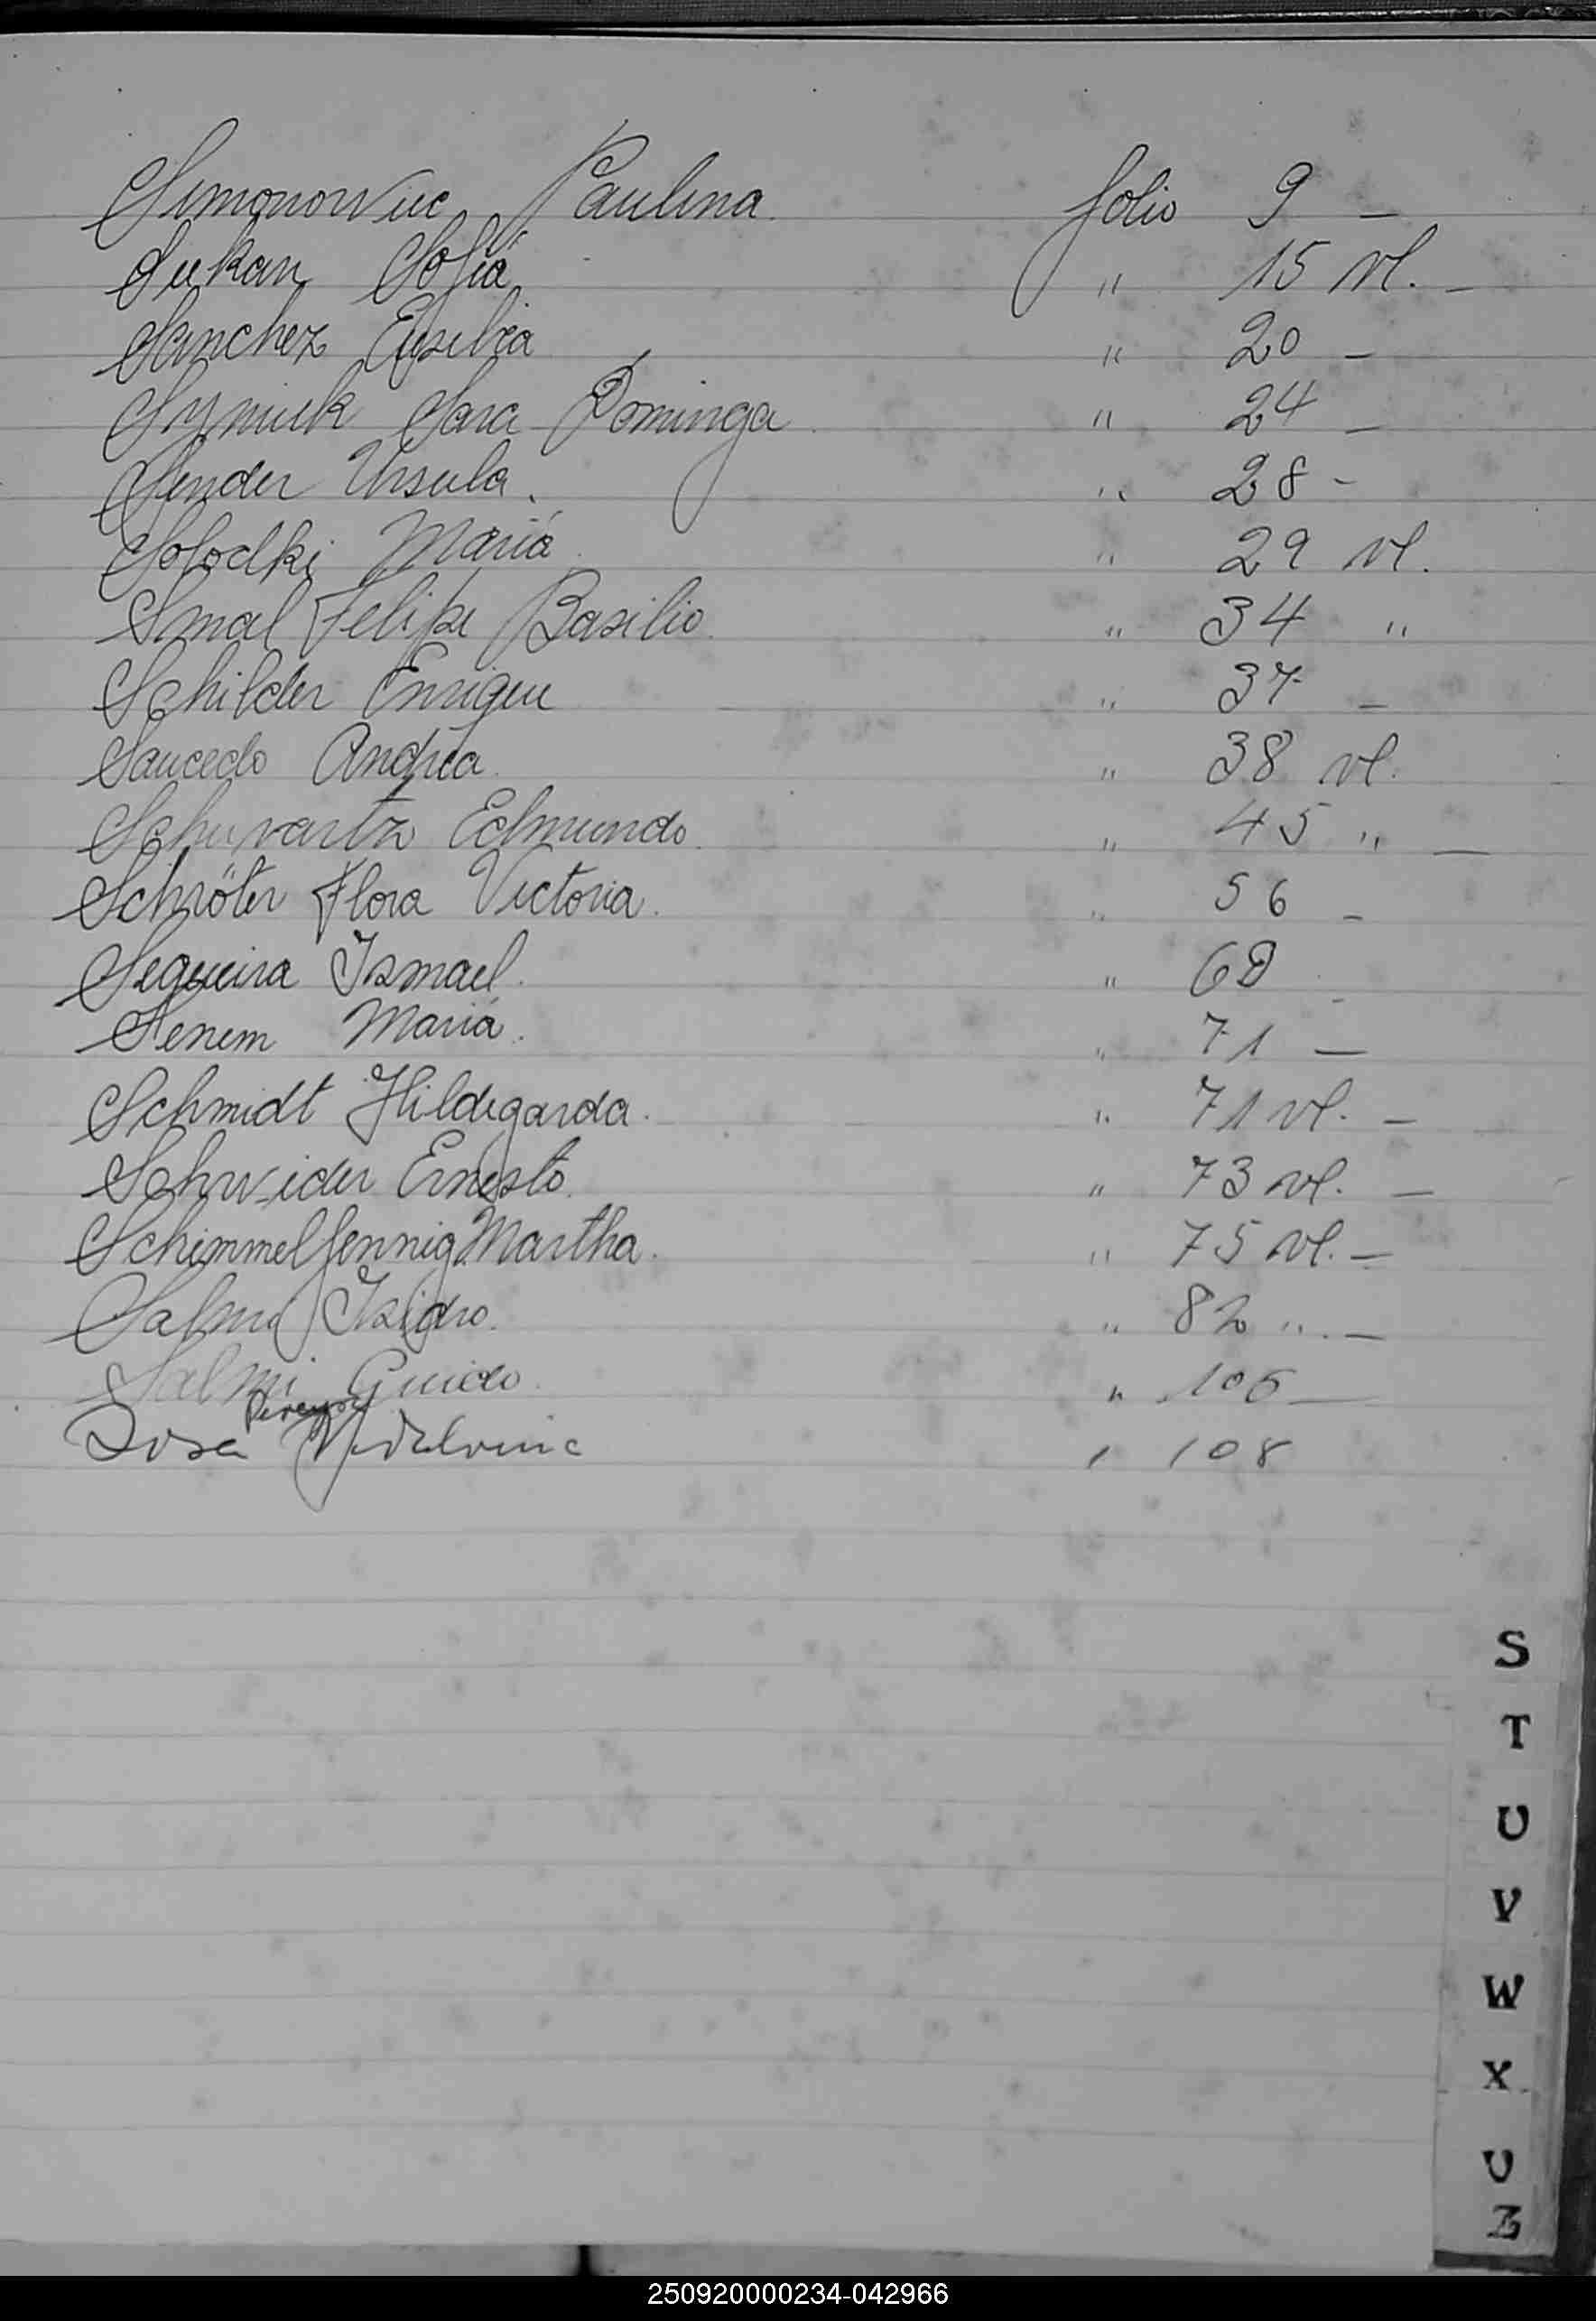 Simonowiec Paulina folio 9 —
Sukan Sofia " 15 vl. —
Sanchez Eusebia " 20 —
Symiuk Sara Dominga " 24 —
Sender Ursula " 28 -
Solodki Maria " 29 vl.
Smal Felipe Basilio " 34 "
Schilder Enrique " 37 —
Saucedo Andrea " 38 vl.
Schwartz Edmundo " 45 " —
Schröter Flora Victoria " 56 —
Sequeira Ismael " 69
Senem Maria " 71 —
Schmidt Hildegarda " 71 vl. —
Schwider Ernesto " 73 vl. —
Schimmelfennig Martha " 75 vl. —
Salmi Isidro " 82 " —
Salmi Guido " 106 —
108
S
T
U
V
W
X
U
Z
250920000234-042966